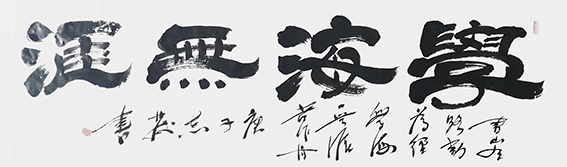 學海無涯
書山有
路勤
為徑
學海
无涯
苦作舟
庚子志書